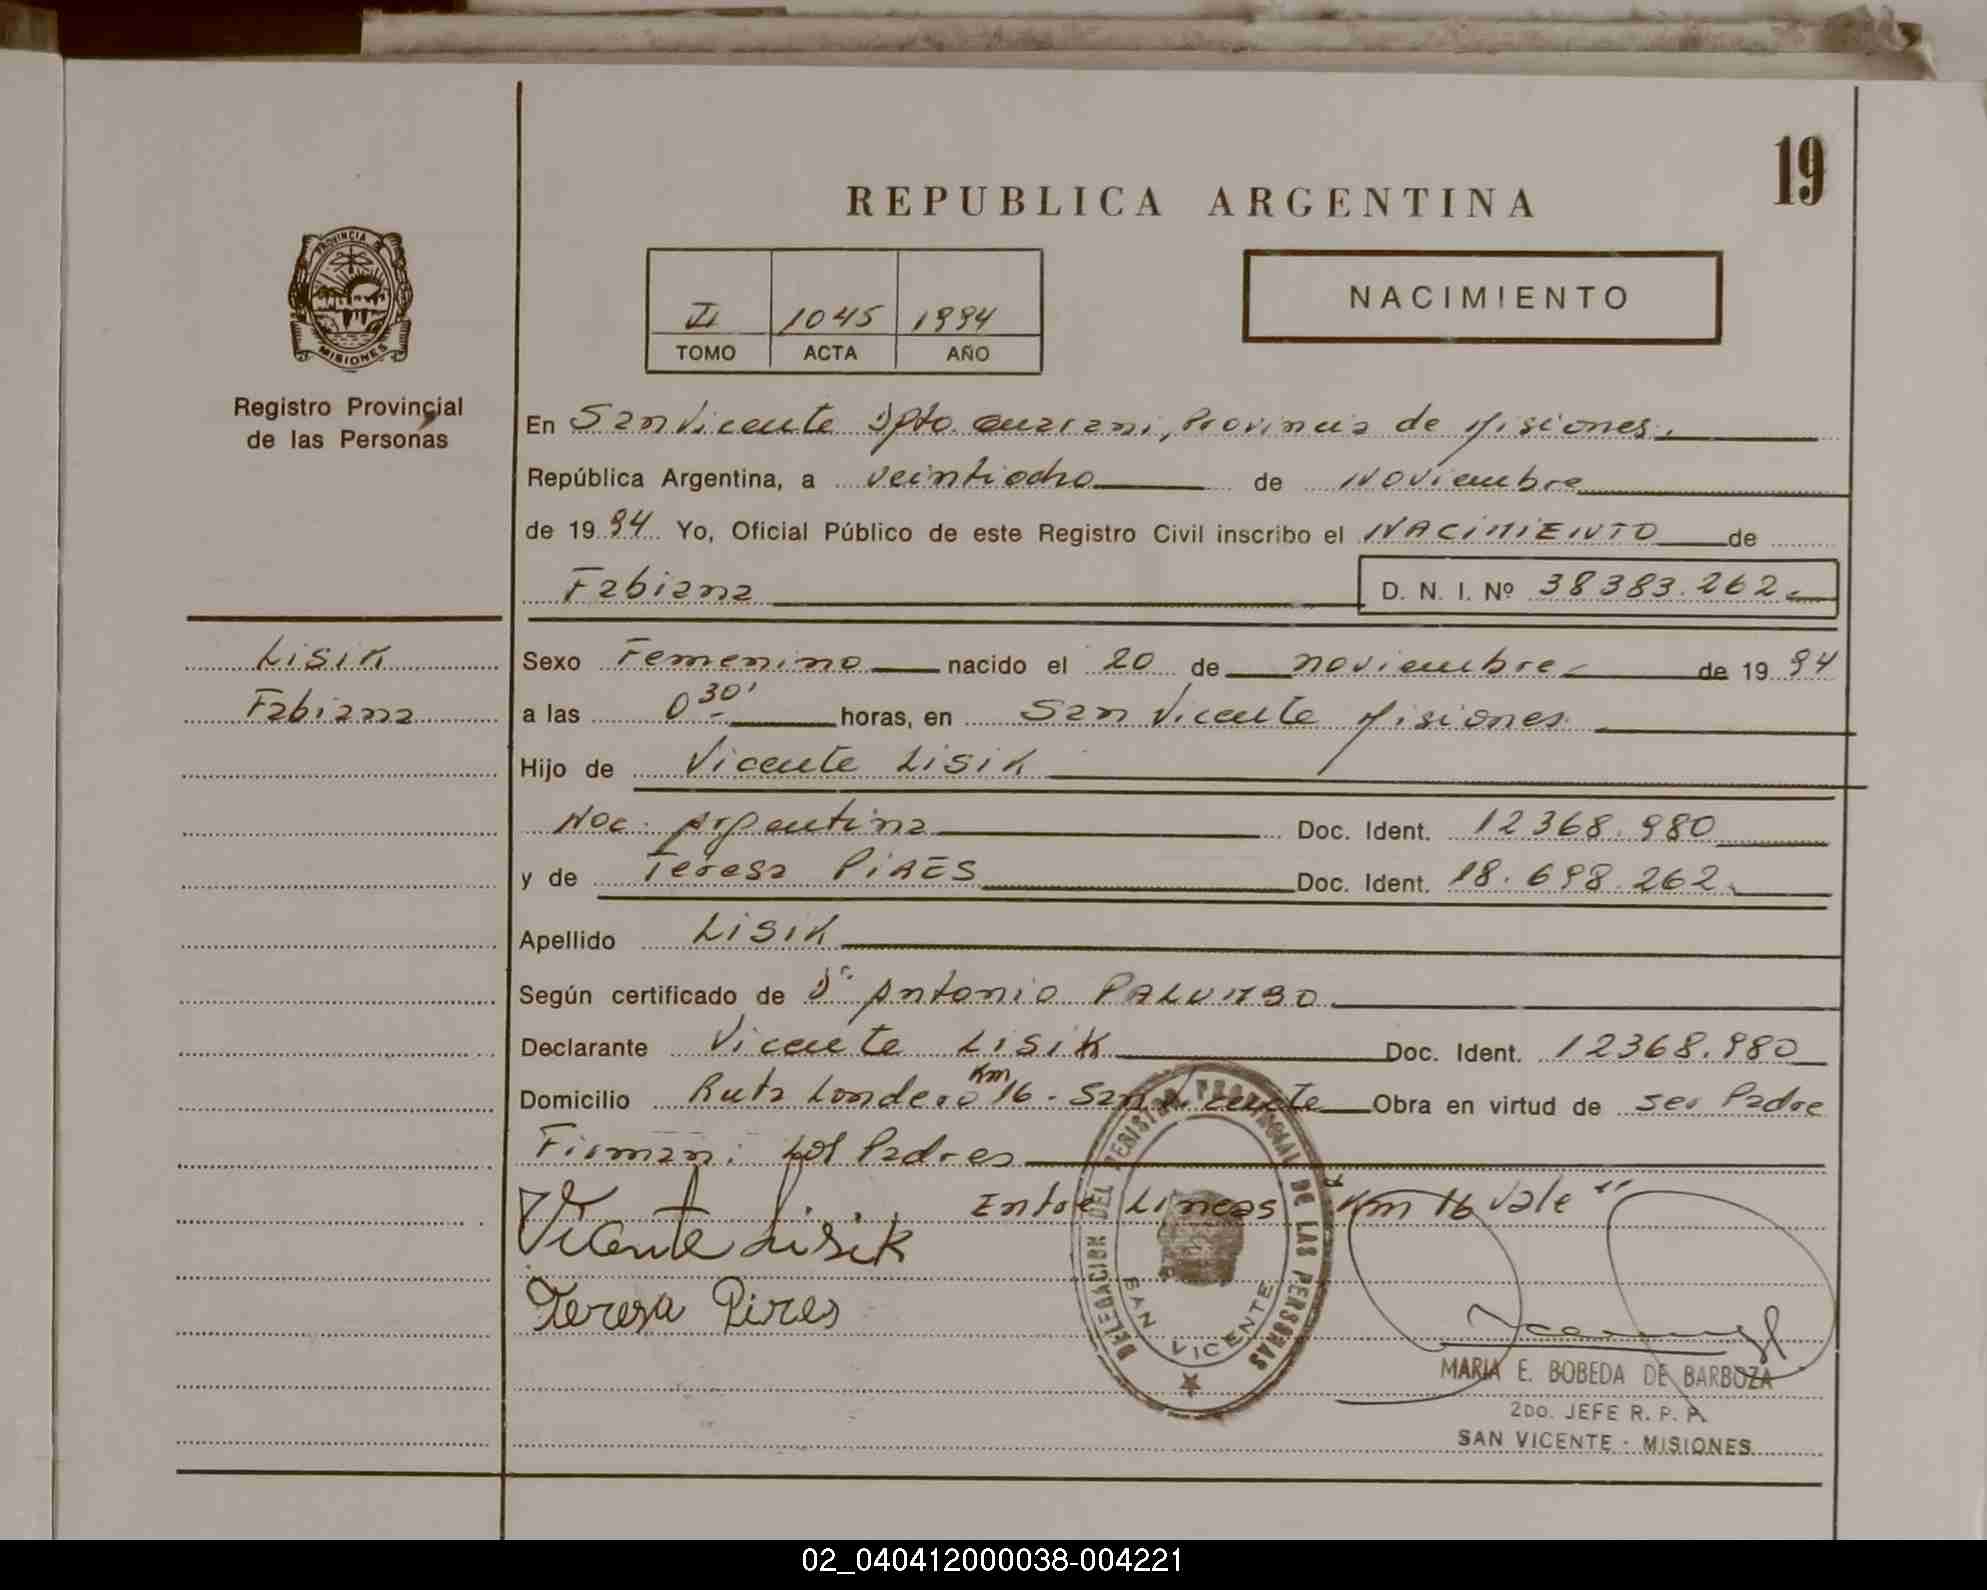 19
REPUBLICA ARGENTINA
PROVINCIA DE
MISIONES
Registro Provincial
de las Personas
NACIMIENTO
II 1045 1994
TOMO ACTA AÑO
En San Vicente Dpto. Guarani, Provincia de Misiones.
República Argentina, a veintiocho de Noviembre
de 1994 Yo, Oficial Público de este Registro Civil inscribo el NACIMIENTO de
Fabiana D. N. I. Nº 38383.262
Lisik
Fabiana
Sexo Femenino nacido el 20 de noviembre de 1994
a las 0 30' horas, en San Vicente Misiones
Hijo de Vicente Lisik
Nac. Argentina Doc. Ident. 12368.980
y de Teresa PIRES Doc. Ident. 18.698.262
Apellido Lisik
Según certificado de Dr Antonio PALUMBO
Declarante Vicente Lisik Doc. Ident. 12368.980
Domicilio Ruta Londero Km 16 - San Vicente Obra en virtud de ser Padre
Firman: Los Padres
Entre Lineas "Km 16 Vale"
Vicente Lisik
Teresa Pires
DELEGACION DEL REGISTRO PROVINCIAL DE LAS PERSONAS
SAN VICENTE
MARIA E. BOBEDA DE BARBOZA
2DO. JEFE R. P. P.
SAN VICENTE - MISIONES
02_040412000038-004221